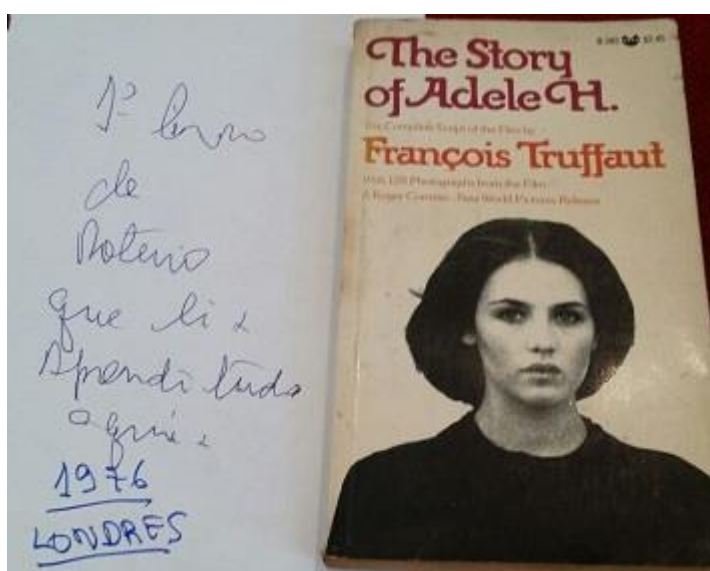 1º livro
de
Roteiro
que li e
Aprendi tudo
aqui.
1976
LONDRES
The Story
of Adele H.
The Complete Script of the Film by
François Truffaut
With 128 Photographs from the Film
A Roger Corman - New World Pictures Release